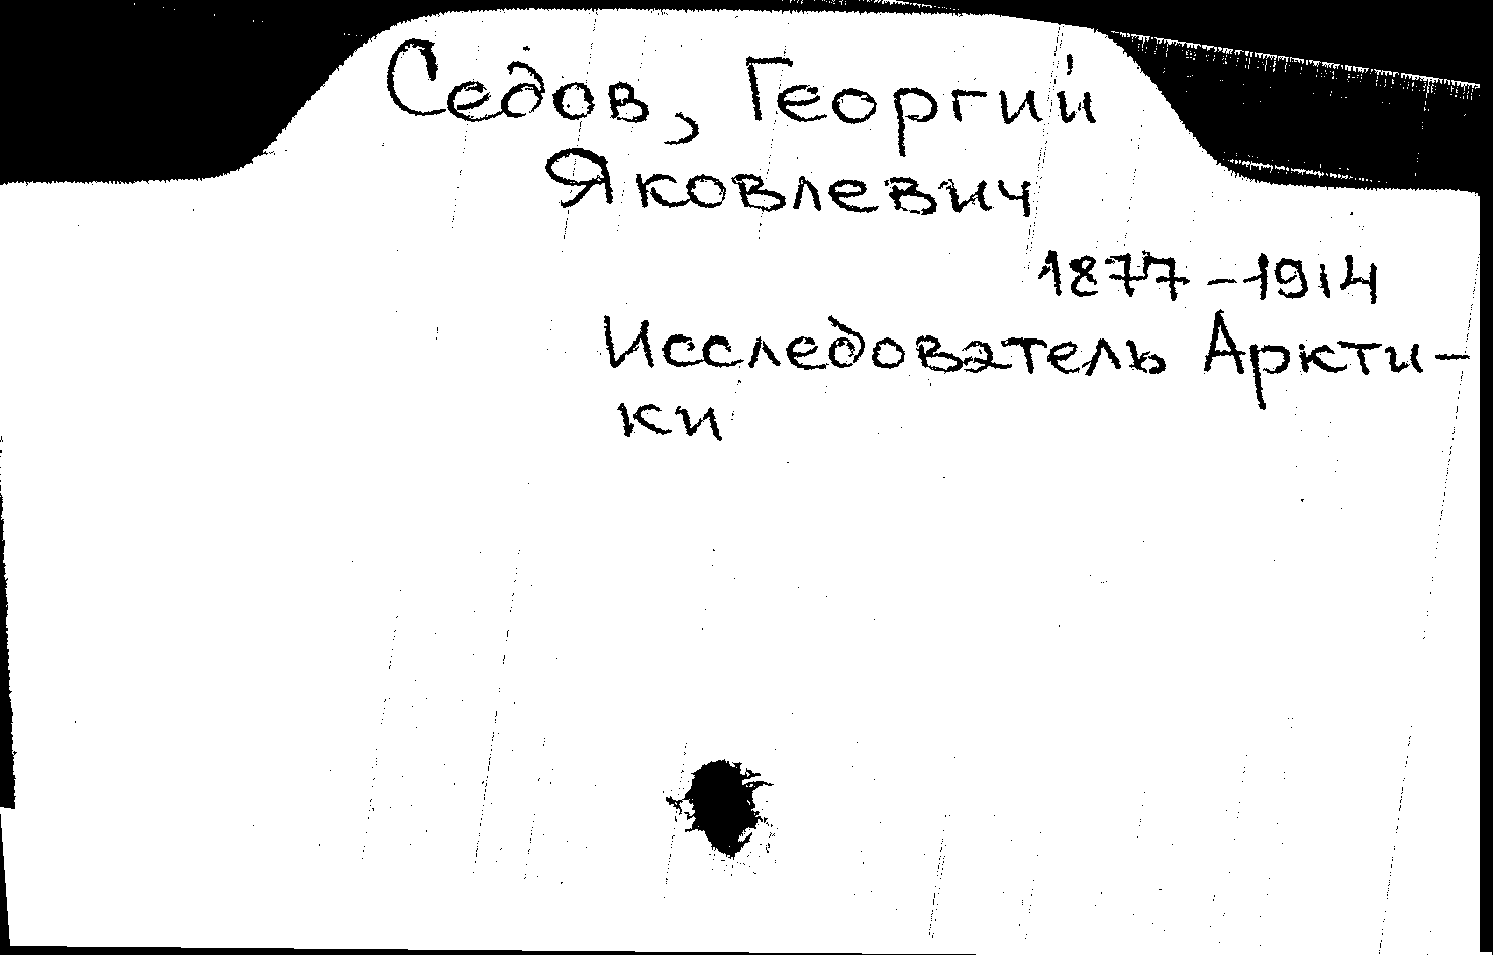 Седов, Георгий
Яковлевич
1877-1914
Исследователь Аркти-
ки